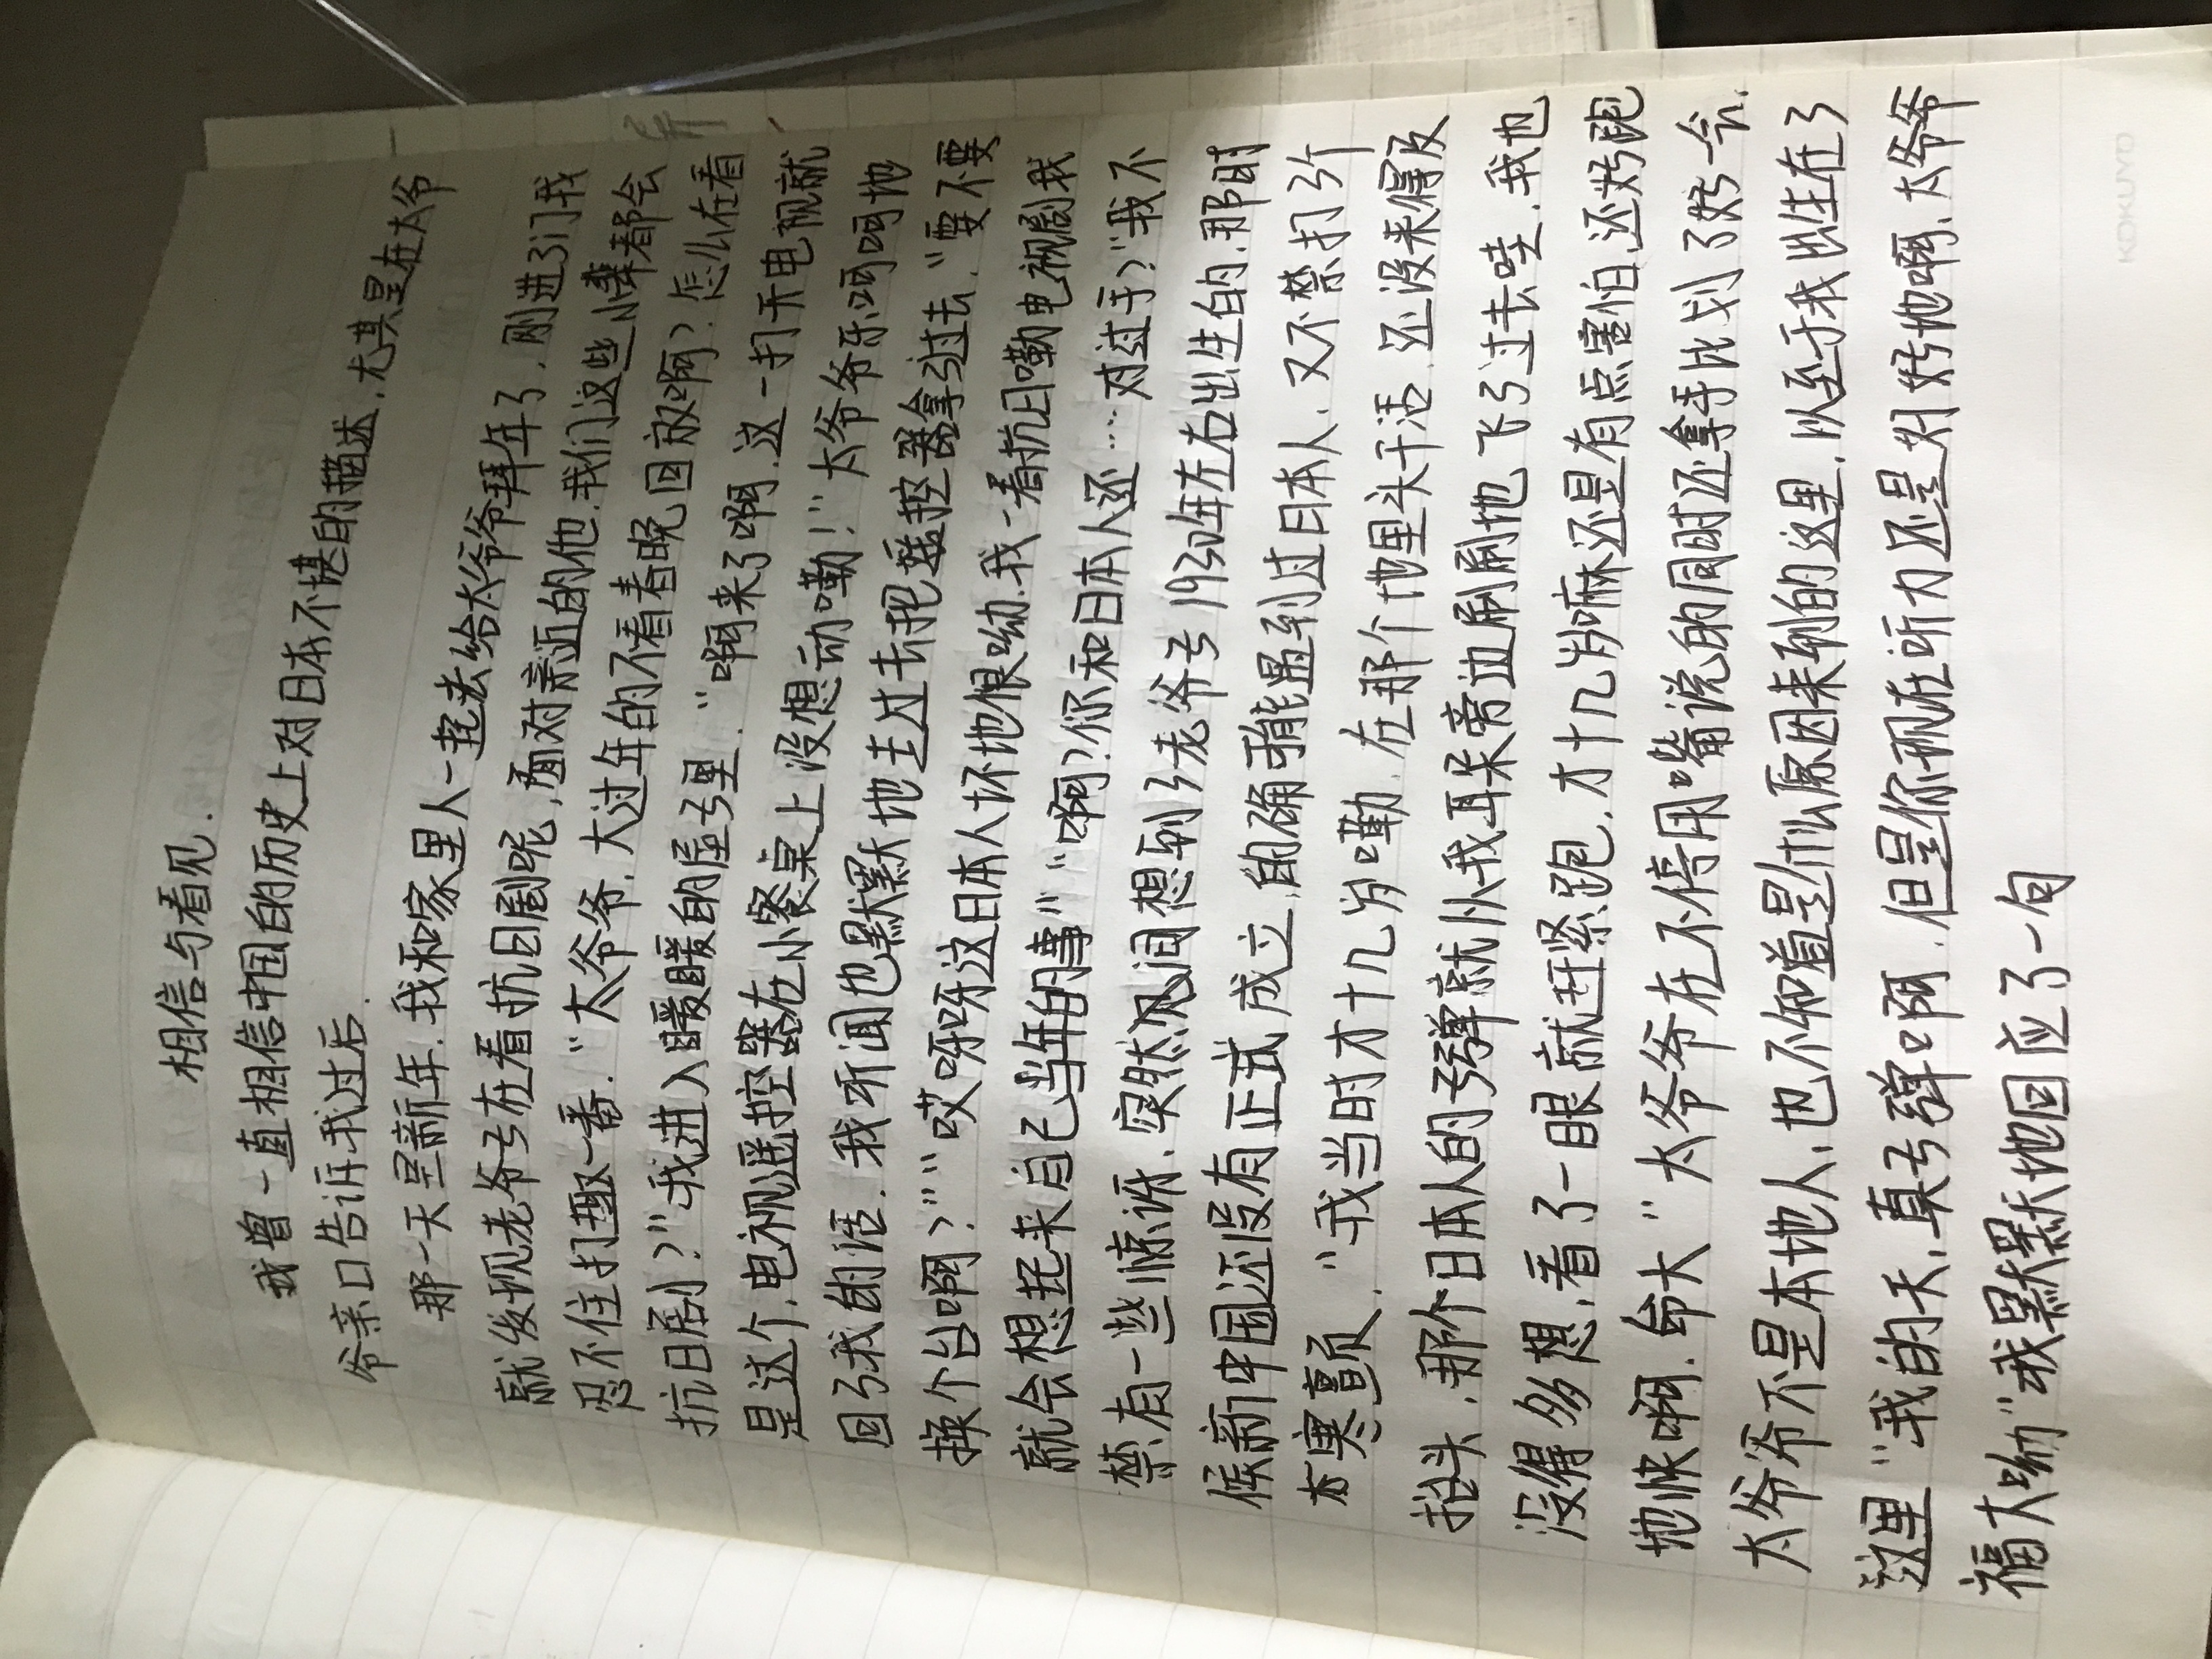 相信与看见.
我曾一直相信中国的历史上对日本不堪的描述,尤其是在太爷
爷亲口告诉我过后.
那一天是新年.我和家里人一起去给太爷爷拜年了,刚进了门我
就发现老爷子在看抗日剧呢,面对亲近的他.我们这些小辈都会
忍不住打趣一番."太爷爷,大过年的不看春晚回放啊?怎么在看
抗日剧?"我进入暖暖的屋子里."啊来了啊.这一打开电视就
是这个,电视遥控器在小餐桌上没想动嘞!"太爷爷乐呵呵地
回了我的话.我听闻也默默地走过去把遥控器拿了过去."要不要
换个台啊?""哎呀呀这日本人坏地很呦.我一看抗日嘞电视剧我
就会想起来自己当年的事""啊?你和日本人还…对过手?"我不
禁有一些惊讶.突然见间想到了老爷子1930年左右出生的,那时
候新中国还没有正式成立,的确可能遇到过日本人.又不禁打了个
寒颤."我当时才十几岁嘞.在那个地里头干活.还没来得及
抬头,那个日本人的子弹就从我耳朵旁边刷刷地飞了过去哇.我也
没得多想,看了一眼就赶紧跑.才十几岁嘛还是有点害怕.还好跑
地快啊.命大"太爷爷在不停用嘴说的同时还拿手比划了好一会.
太爷爷不是本地人,也不知道是什么原因来到的这里,以至于我出生在了
这里"我的天,真子弹啊,但是你现在听力还是好好地啊,太爷爷
福大呦"我默默地回应了一句
KOKUYO